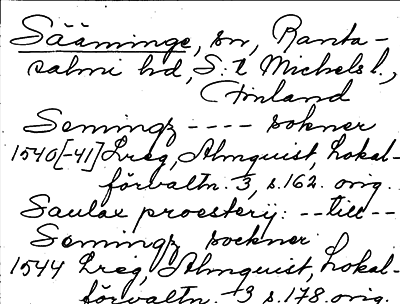 Sääminge, sn, Ranta-
salmi hd, S:t Michels l.,
Finland
Semingz ---- sokner
1540[-41] Lreg, Almquist, Lokal-
förvaltn. 3, s.162. orig.
Saulax proesterij: --till--
Semingz sockner
1544 Lreg, Almquist, Lokal-
förvaltn. 3 s.178. orig.